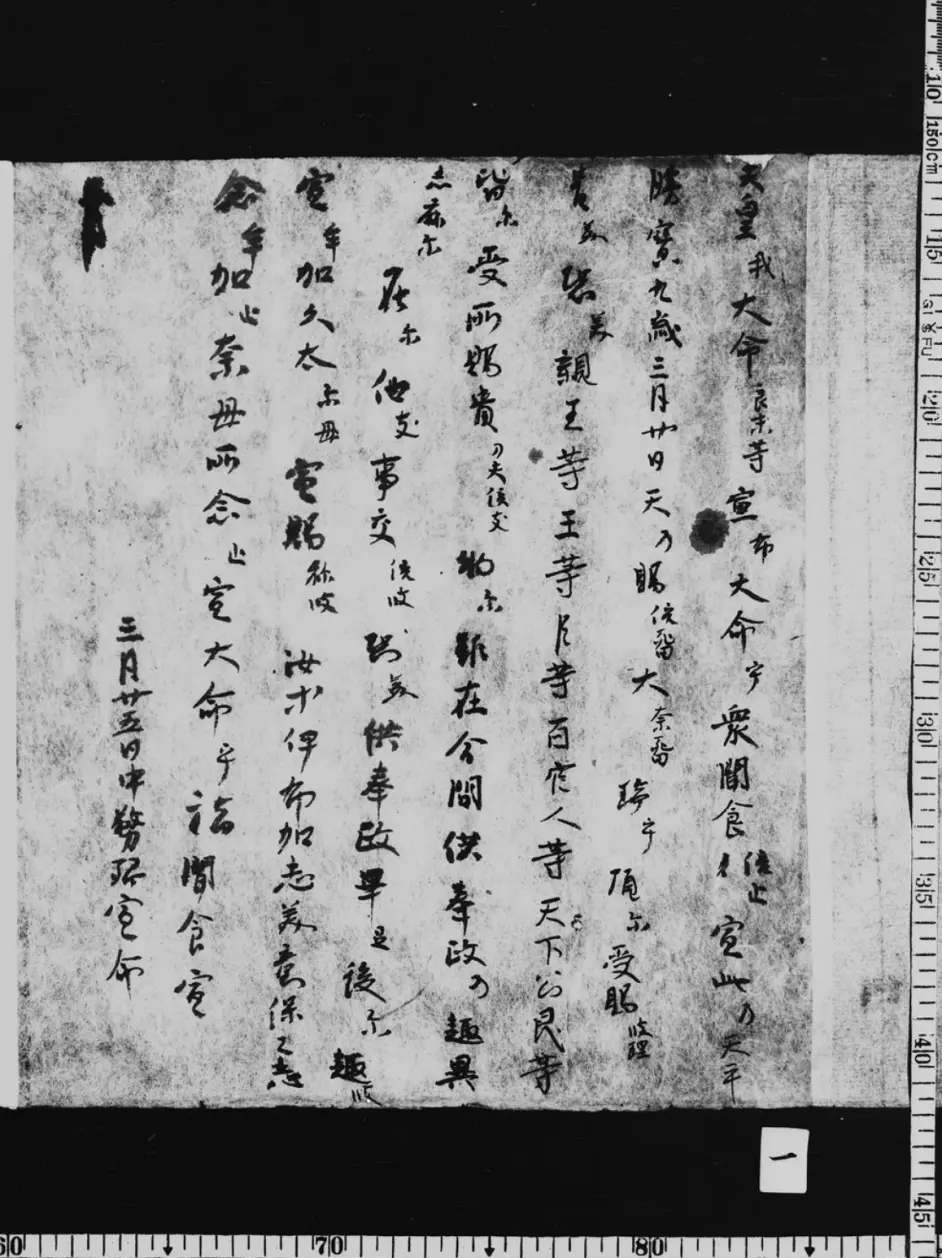 天皇我大命良末等宣布大命乎衆聞食倍止宣此乃天平
勝寳九歳三月廿日天乃賜倍留大奈留瑞乎頂尓受賜波理
貴美恐美親王等王等臣等百官人等天下公民等
皆尓受所賜貴刀夫倍支物尓雖在今間供奉政乃趣異
志麻尓
在尓他支事交倍波恐美供奉政畢弖後尓趣波
宣牟加久太尓母宣賜祢波汝等伊布加志美意保々志
念牟加止奈母所念止宣大命乎諸聞食宣
三月廿五日中務卿宣命
一
60 70 80
10 150cm 15 20 25 30 35 40 45